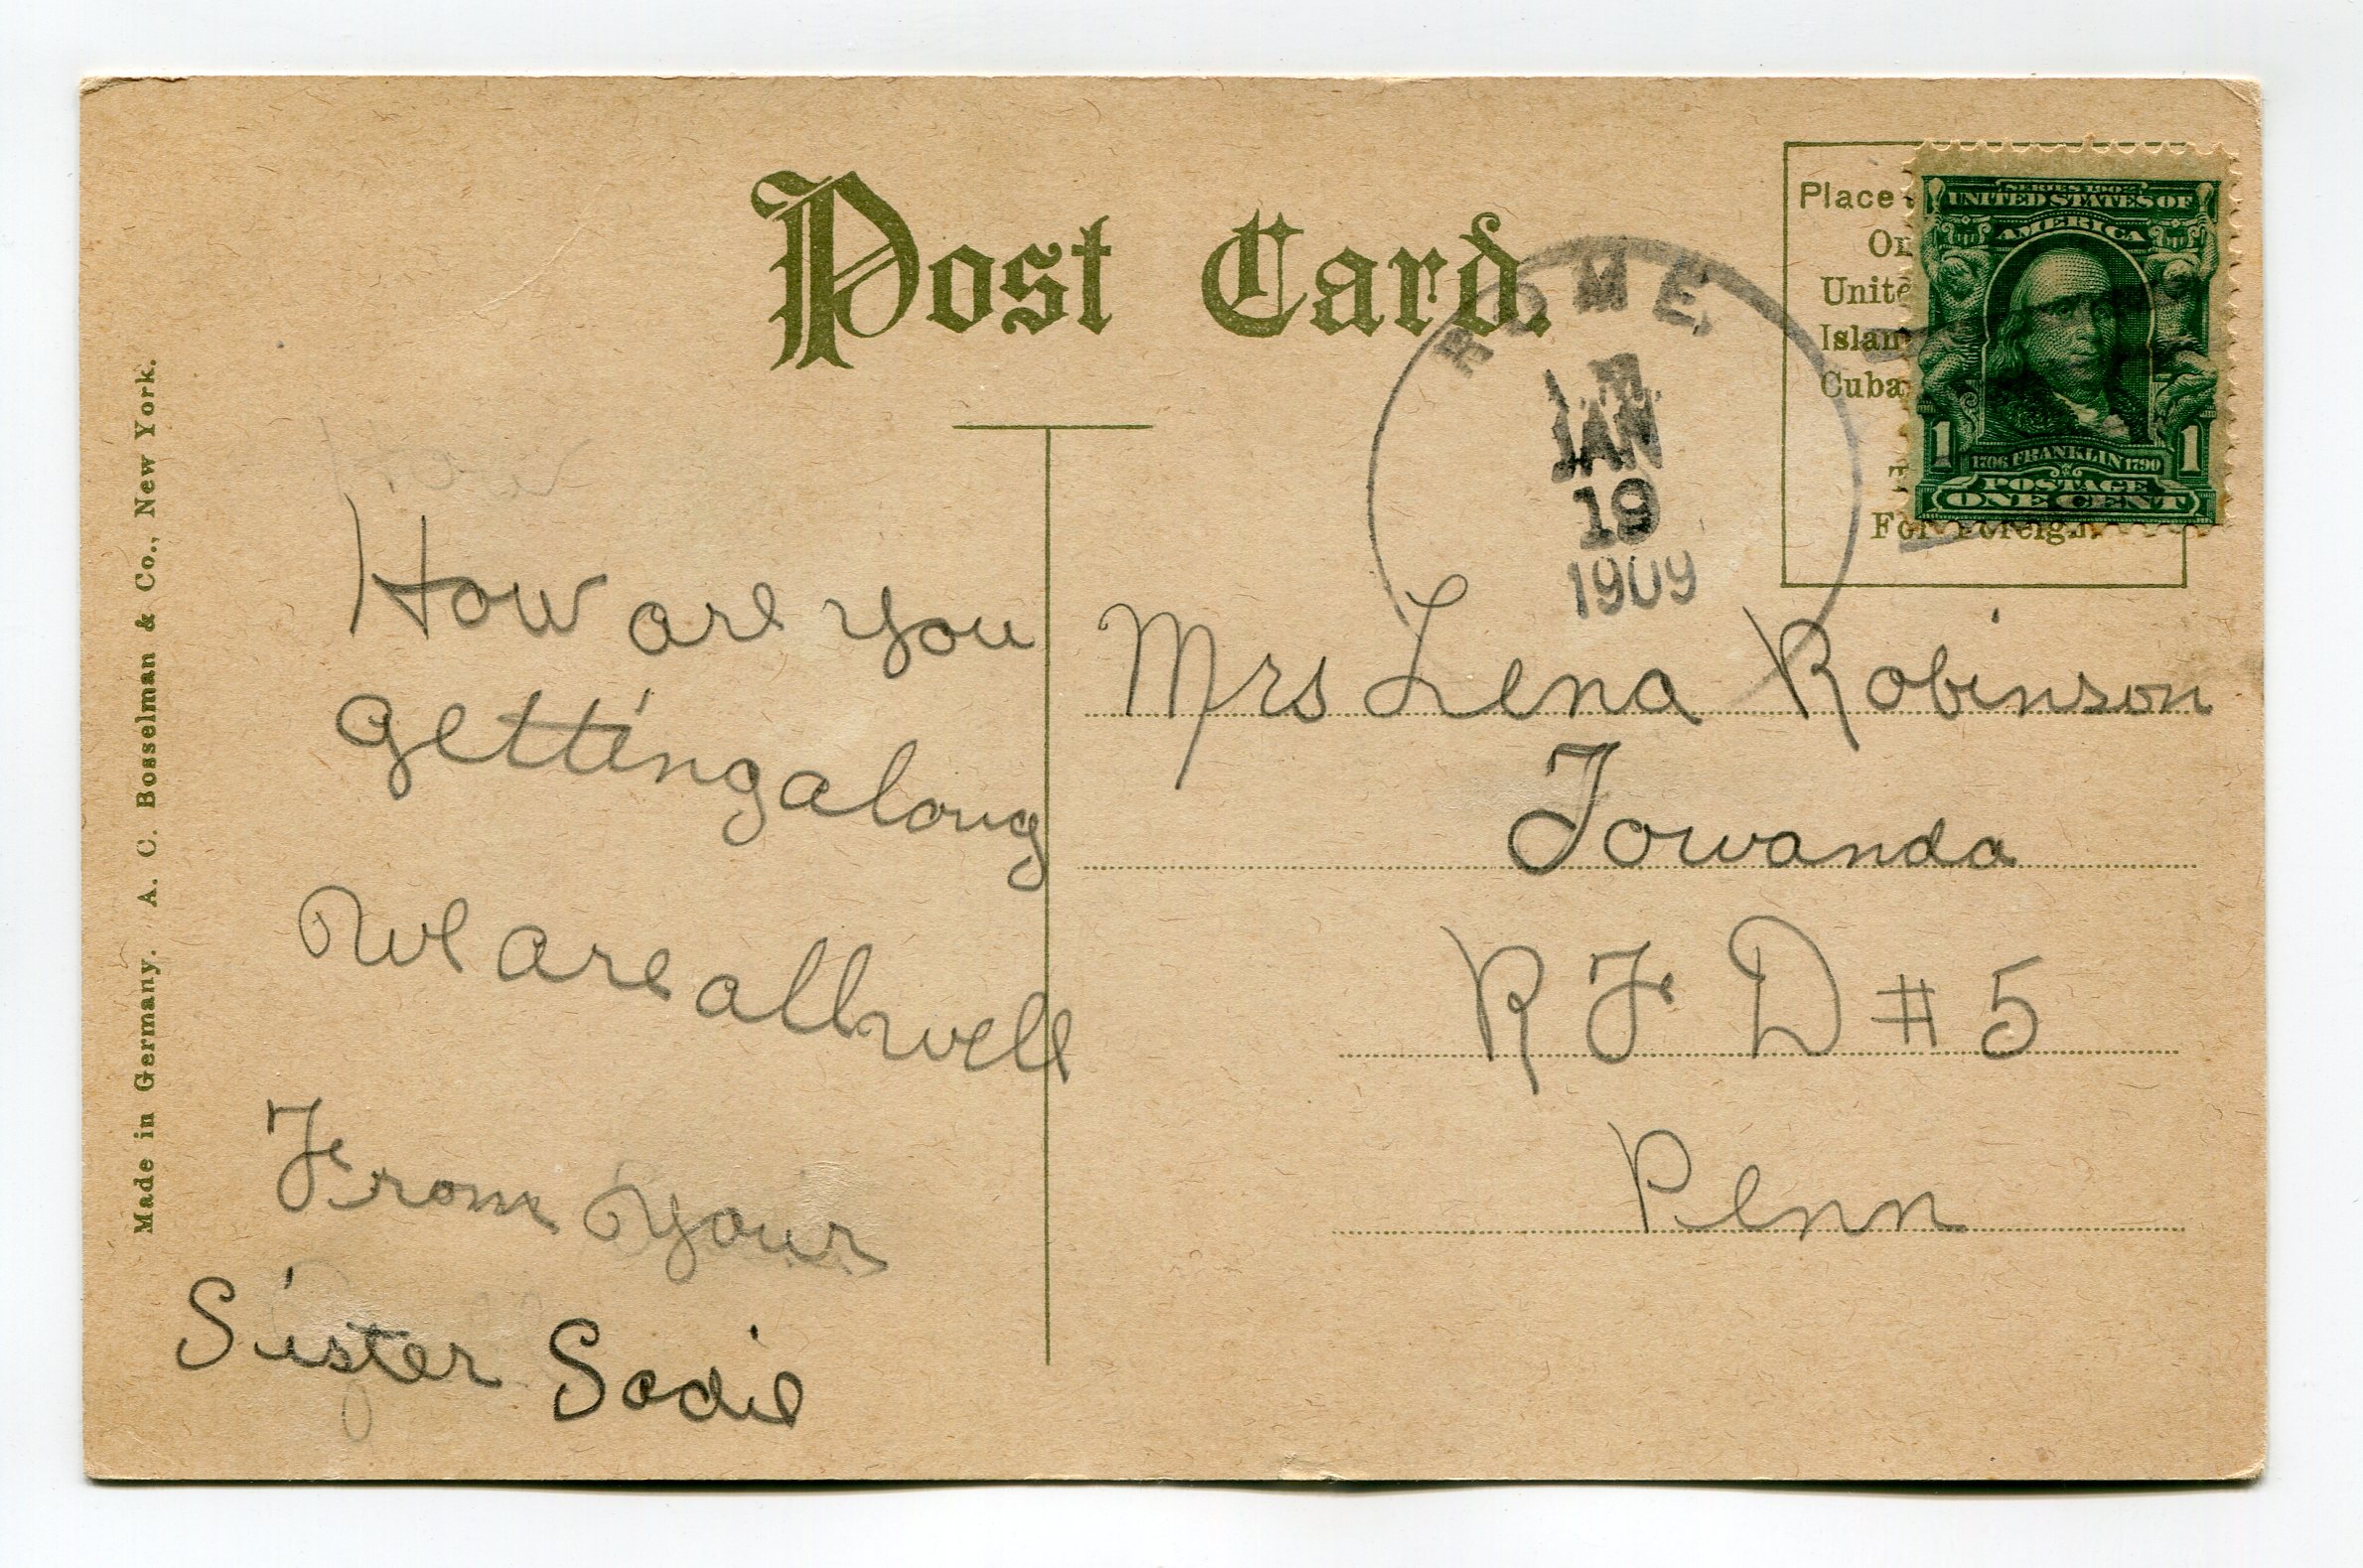 Post Card.
Made in Germany. A. C. Bosselman & Co., New York.
ROME
JAN
19
1909
Place
On
Unite
Islan
Cuba
For Foreign.
SERIES 1902
UNITED STATES OF
AMERICA
1706 FRANKLIN 1790
1 POSTAGE 1
ONE CENT
How
How are you
getting along
we are all well
From your
Sister Sadie
Mrs Lena Robinson
Towanda
R F D # 5
Penn